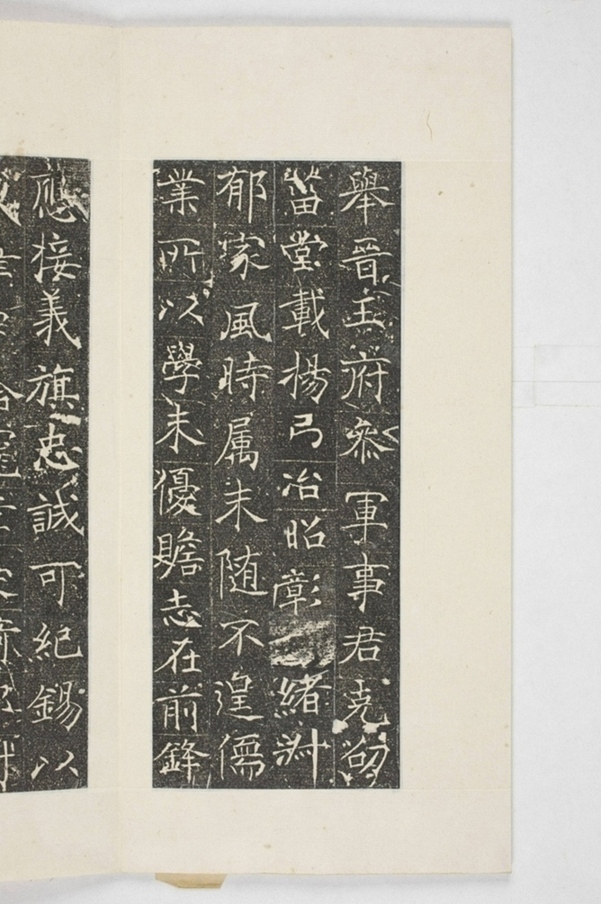 舉晉王府叅軍事君克劭
菑堂載揚弓冶昭彰緒
郁家風時属末随不遑儒
業所以學未優贍志在前鋒
應接義旗忠誠可紀錫以